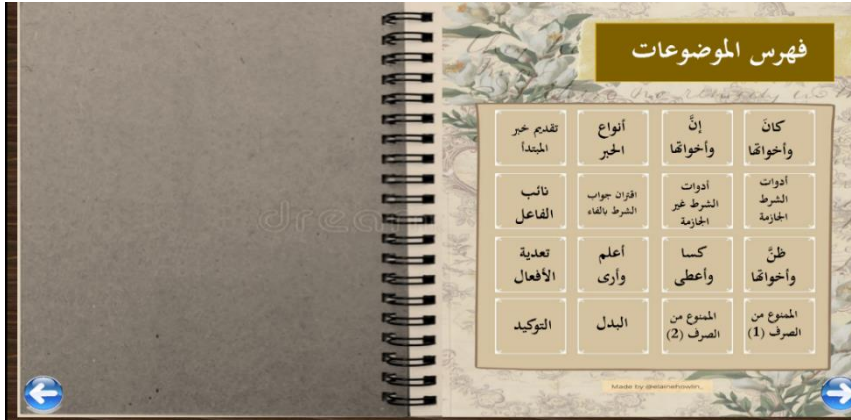 فهرس الموضوعات
كانَ
وأخواتها
إنَّ
وأخواتها
أنواع
الخبر
تقديم خبر
المبتدأ
أدوات
الشرط
الجازمة
أدوات
الشرط غير
الجازمة
اقتران جواب
الشرط بالفاء
نائب
الفاعل
ظنَّ
وأخواتها
كسا
وأعطى
أعلم
وأرى
تعدية
الأفعال
الممنوع من
الصرف (1)
الممنوع من
الصرف (2)
البدل
التوكيد
Made by @elainehowlin_